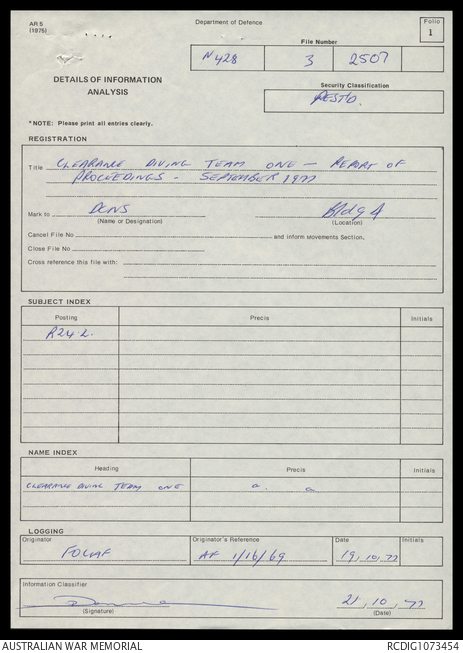 AR 5
(1975)
Department of Defence
Folio
1
File Number
N428 3 2507
DETAILS OF INFORMATION
ANALYSIS
Security Classification
RESTD.
*NOTE: Please print all entries clearly.
REGISTRATION
Title CLEARANCE DIVING TEAM ONE — REPORT OF
PROCEEDINGS - SEPTEMBER 1977
Mark to DCNS Bldg A
(Name or Designation) (Location)
Cancel File No and inform Movements Section.
Close File No
Cross reference this file with:
SUBJECT INDEX
Posting Precis Initials
R24.2.
NAME INDEX
Heading Precis Initials
CLEARANCE DIVING TEAM ONE a. a
LOGGING
Originator Originator's Reference Date Initials
AF 1/16/69 19.10.77
Information Classifier
21.10.77
(Signature) (Date)
AUSTRALIAN WAR MEMORIAL RCDIG1073454